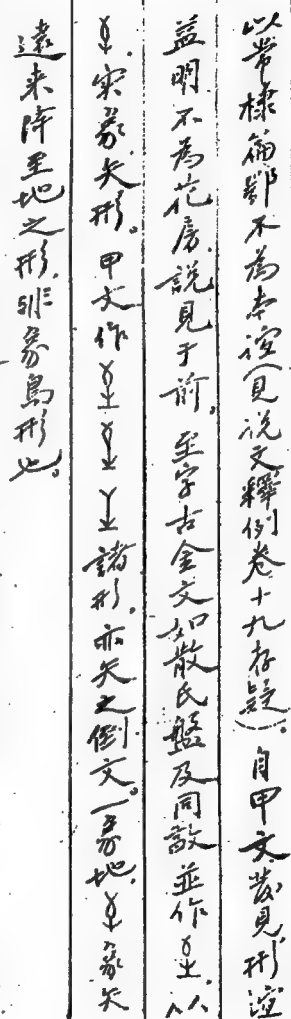 以常棣篇鄂不為本證(見说文釋例卷十九存疑)。自甲文發見,形證
益明,不為花房,說見于前。至字古金文如散氏盤及同𣪘並作,从
,实象矢形。甲文作諸形,亦矢之倒文。一象地,象矢
遠来降至地之形,非象鳥形也。